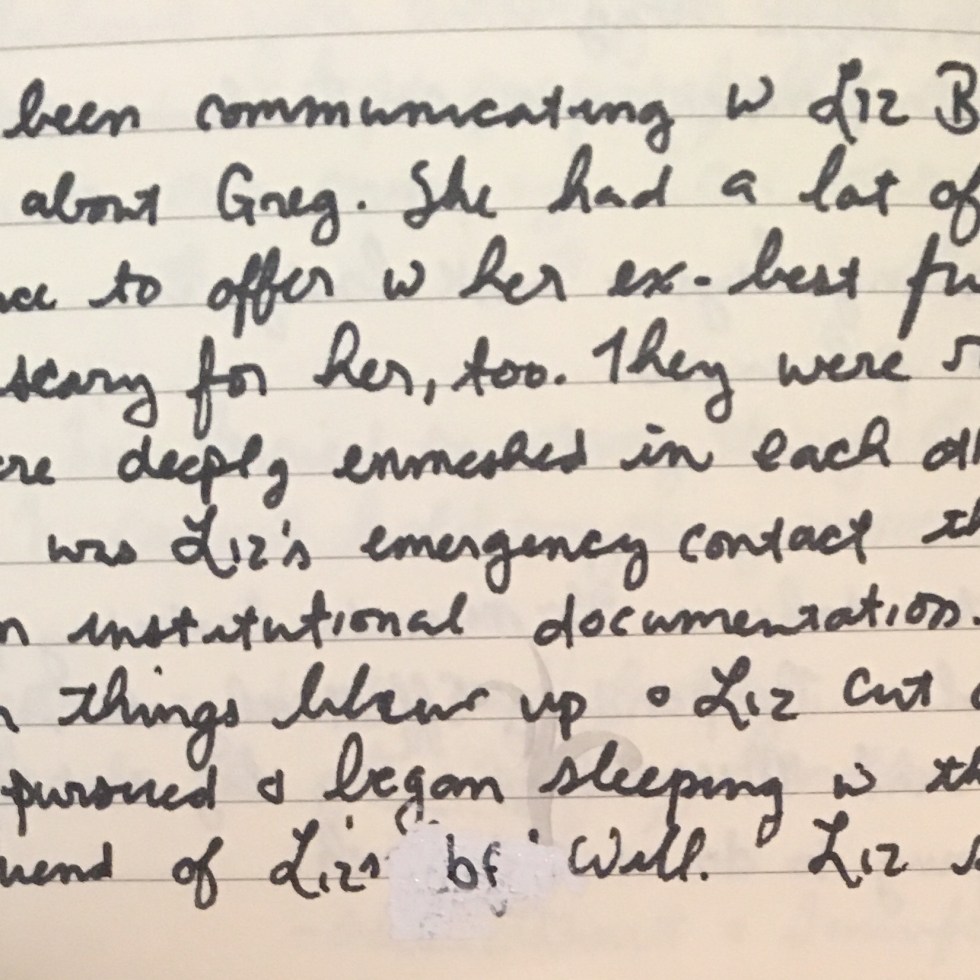 been communicating w Liz B
about Greg. She had a lot of
to offer w her ex-best
scary for her, too. They were
deeply enmeshed in each
was Liz's emergency contact
institutional documentation.
things blew up & Liz cut
pursued & began sleeping w
of Liz's bf Will. Liz